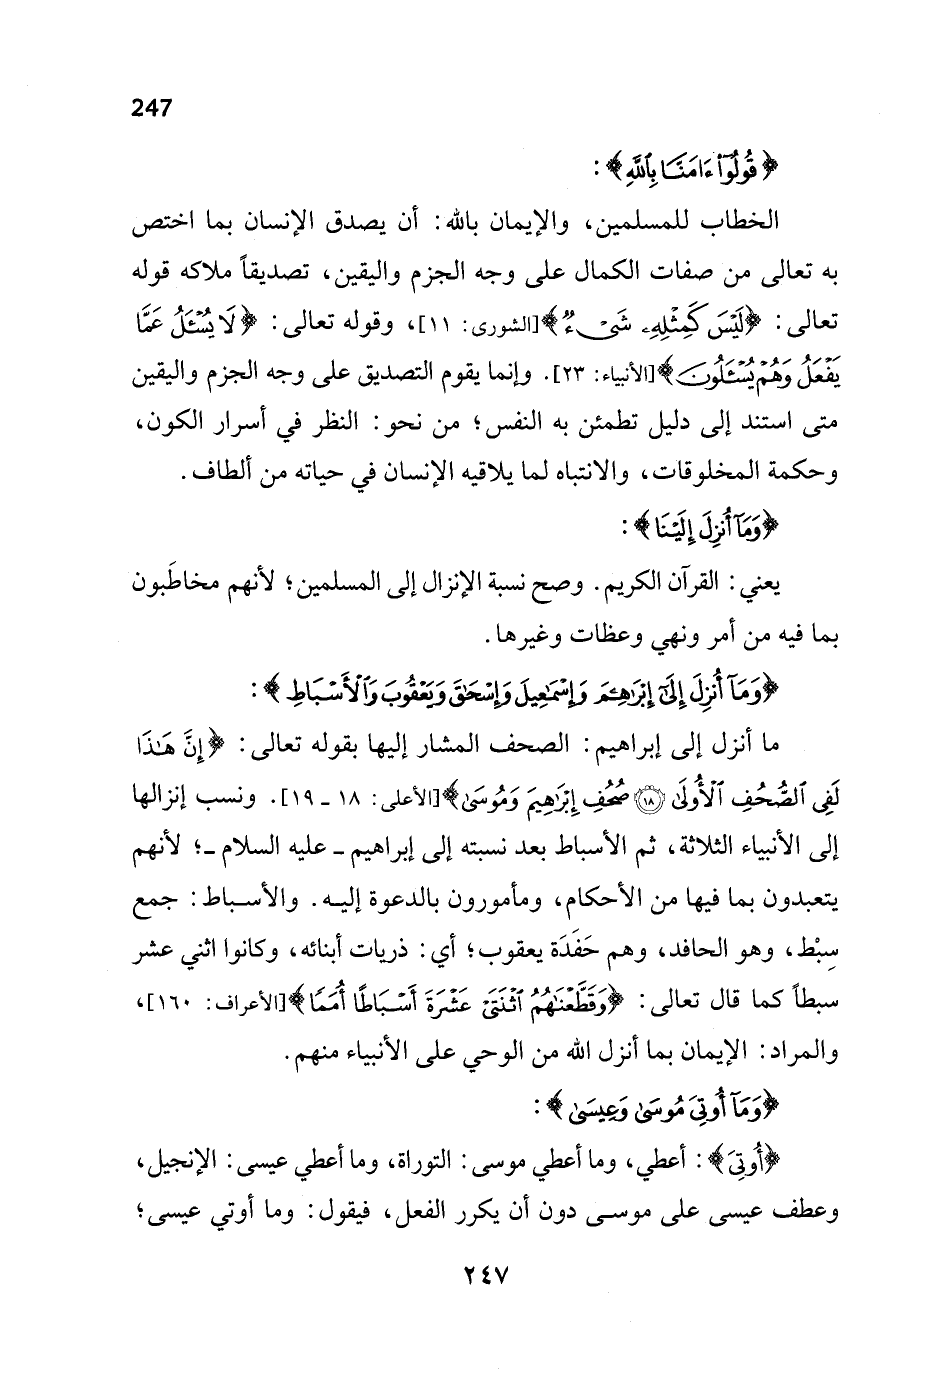 247
﴿قُولُوٓا۟ ءَامَنَّا بِٱللَّهِ﴾:
الخطاب للمسلمين، والإيمان بالله: أن يصدق الإنسان بما اختص
به تعالى من صفات الكمال على وجه الجزم واليقين، تصديقاً ملاكه قوله
تعالى: ﴿لَيْسَ كَمِثْلِهِۦ شَىْءٌ﴾[الشورى: ١١]، وقوله تعالى: ﴿لَا يُسْـَٔلُ عَمَّا
يَفْعَلُ وَهُمْ يُسْـَٔلُونَ﴾[الأنبياء: ٢٣]. وإنما يقوم التصديق على وجه الجزم واليقين
متى استند إلى دليل تطمئن به النفس؛ من نحو: النظر في أسرار الكون،
وحكمة المخلوقات، والانتباه لما يلاقيه الإنسان في حياته من ألطاف.
﴿وَمَآ أُنزِلَ إِلَيْنَا﴾:
يعني: القرآن الكريم. وصح نسبة الإنزال إلى المسلمين؛ لأنهم مخاطَبون
بما فيه من أمر ونهي وعظات وغيرها.
﴿وَمَآ أُنزِلَ إِلَىٰٓ إِبْرَٰهِـۧمَ وَإِسْمَـٰعِيلَ وَإِسْحَـٰقَ وَيَعْقُوبَ وَٱلْأَسْبَاطِ﴾:
ما أنزل إلى إبراهيم: الصحف المشار إليها بقوله تعالى: ﴿إِنَّ هَـٰذَا
لَفِى ٱلصُّحُفِ ٱلْأُولَىٰ ۝١٨ صُحُفِ إِبْرَٰهِيمَ وَمُوسَىٰ﴾[الأعلى: ١٨ ـ ١٩]. ونسب إنزالها
إلى الأنبياء الثلاثة، ثم الأسباط بعد نسبته إلى إبراهيم ـ عليه السلام ـ؛ لأنهم
يتعبدون بما فيها من الأحكام، ومأمورون بالدعوة إليه. والأسباط: جمع
سِبْط، وهو الحافد، وهم حَفَدَة يعقوب؛ أي: ذريات أبنائه، وكانوا اثني عشر
سبطاً كما قال تعالى: ﴿وَقَطَّعْنَـٰهُمُ ٱثْنَتَىْ عَشْرَةَ أَسْبَاطًا أُمَمًا﴾[الأعراف: ١٦٠]،
والمراد: الإيمان بما أنزل الله من الوحي على الأنبياء منهم.
﴿وَمَآ أُوتِىَ مُوسَىٰ وَعِيسَىٰ﴾:
﴿أُوتِىَ﴾: أعطي، وما أعطي موسى: التوراة، وما أعطي عيسى: الإنجيل،
وعطف عيسى على موسى دون أن يكرر الفعل، فيقول: وما أوتي عيسى؛
٢٤٧